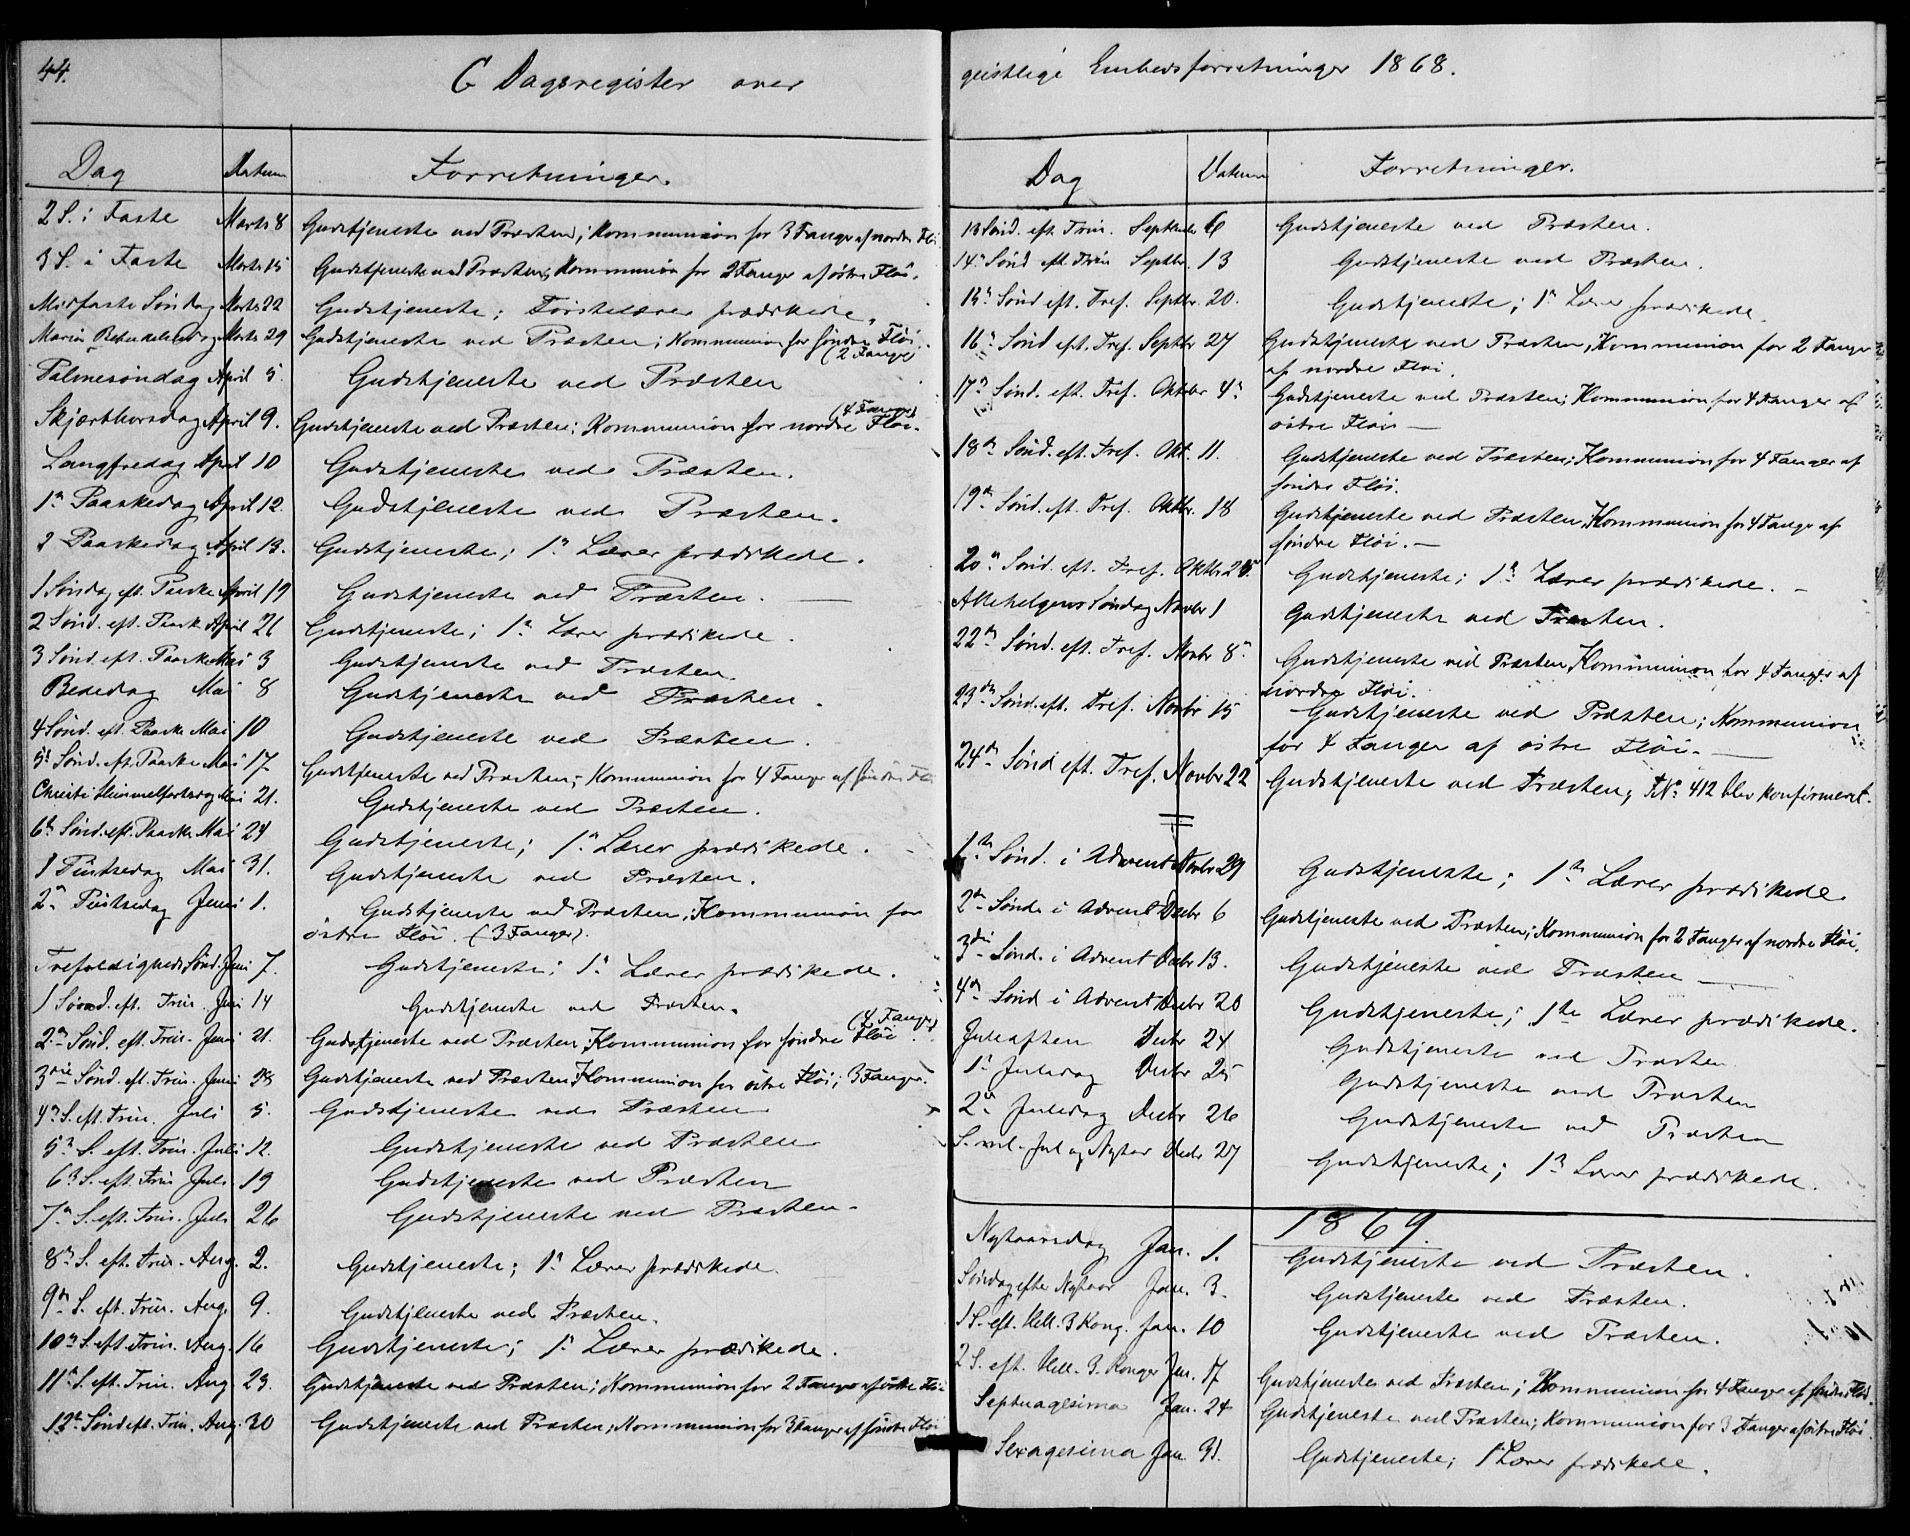 44.
C Dagsregister over
Dag Datum Forretninger.
2 S. i Faste Marts 8 Gudstjeneste ved Præsten; Kommunion for 3 Fanger af nordre Flöi
3 S. i Faste Marts 15 Gudstjeneste ved Præsten; Kommunion for 2 Fanger af östre Flöi.
Midfaste Söndag Marts 22 Gudstjeneste; Förstelærer prædikede.
Mariæ Bebudelsesdag Marts 29 Gudstjeneste ved Præsten; Kommunion for söndre Flöi.
(2 Fanger)
Palmesöndag April 5. Gudstjeneste ved Præsten
(4 Fanger)
Skjærthorsdag April 9. Gudstjeneste ved Præsten; Kommunion for nordre Flöi.
Langfredag April 10 Gudstjeneste ved Præsten.
1ste Paaskedag April 12. Gudstjeneste ved Præsten.
2 Paaskedag April 13. Gudstjeneste; 1ste Lærer prædikede.
1 Söndag eft. Paaske April 19 Gudstjeneste ved Præsten.
2 Sönd. eft. Paask April 26 Gudstjeneste; 1ste Lærer prædikede.
3 Sönd. eft. Paaske Mai 3 Gudstjeneste ved Præsten.
Bededag Mai 8 Gudstjeneste ved Præsten.
4 Sönd. eft. Paaske Mai 10 Gudstjeneste ved Præsten.
5te Sönd. eft. Paaske Mai 17 Gudstjeneste ved Præsten; Kommunion for 4 Fanger af söndre Flöi
Christi Himmelfartsdag Mai 21. Gudstjeneste ved Præsten.
6te Sönd. eft. Paaske Mai 24 Gudstjeneste; 1ste Lærer prædikede.
1 Pintsedag Mai 31. Gudstjeneste ved Præsten.
2n Pintsedag Juni 1. Gudstjeneste ved Præsten; Kommunion for
östre Flöi. (3 Fanger).
Trefoldigheds Sönd. Juni 7. Gudstjeneste; 1ste Lærer prædikede.
1 Sönd. eft. Trin. Juni 14 Gudstjeneste ved Præsten.
(4 Fanger)
2n Sönd. eft. Trin. Juni 21. Gudstjeneste ved Præsten; Kommunion for söndre Flöi.
3die Sönd. eft. Trin. Juni 28 Gudstjeneste ved Præsten; Kommunion for östre Flöi; 3 Fanger.
4de S. eft. Trin. Juli 5. Gudstjeneste ved Præsten
5te S. eft. Trin. Juli 12. Gudstjeneste ved Præsten
6te S. eft. Trin Juli 19 Gudstjeneste ved Præsten
7de S. eft. Trin. Juli 26 Gudstjeneste ved Præsten.
8de S. eft. Trin. Aug. 2. Gudstjeneste; 1ste Lærer prædikede.
9de S. eft. Trin. Aug. 9. Gudstjeneste ved Præsten.
10de S. eft. Trin. Aug. 16 Gudstjeneste; 1ste Lærer prædikede.
11te S. eft. Trin. Aug. 23. Gudstjeneste ved Præsten; Kommunion for 2 Fanger af östre Flöi
12te Sönd eft. Trin. Aug. 30 Gudstjeneste ved Præsten; Kommunion for 3 Fanger af söndre Flöi
geistlige Embedsforretninger 1868.
Dag Datum Forretninger.
13 Sönd. eft. Trin. Septbr 6 Gudstjeneste ved Præsten.
14de Sönd eft. Trin Septbr. 13 Gudstjeneste ved Præsten.
15de Sönd eft. Tref. Septbr. 20. Gudstjeneste; 1ste Lærer prædikede.
16de Sönd eft. Tref. Septbr 27 Gudstjeneste ved Præsten, Kommunion for 2 Fanger
af nordre Flöi.
17de Sönd. eft. Tref. Oktbr 4de Gudstjeneste ved Præsten; Kommunion for 4 Fanger af
östre Flöi —
18de Sönd. eft. Tref. Okt. 11. Gudstjeneste ved Præsten; Kommunion for 4 Fanger af
söndre Flöi.
19de Sönd. eft. Tref. Oktbr. 18 Gudstjeneste ved Præsten; Kommunion for 4 Fanger af
söndre Flöi. —
20de Sönd. eft. Tref. Oktbr 25. Gudstjeneste; 1ste Lærer prædikede. —
Allehelgens Söndag Novbr 1 Gudstjeneste ved Præsten.
22de Sönd. eft. Tref. Novbr 8de Gudstjeneste ved Præsten, Kommunion for 4 Fanger af
nordre Flöi.
23de Sönd. eft. Tref. Novbr 15 Gudstjeneste ved Præsten; Kommunion
for 4 Fanger af östre Flöi. —
24de Sönd eft. Tref. Novbr 22 Gudstjeneste ved Præsten; F.No 412 blev konfirmeret.
1ste Sönd. i Advent Novbr 29 Gudstjeneste; 1ste Lærer prædikede
2den Sönd. i Advent Decbr 6 Gudstjeneste ved Præsten; Kommunion for 2 Fanger af nordre Flöi.
3die Sönd. i Advent Decbr 13. Gudstjeneste ved Præsten —
4de Sönd i Advent Decbr 20 Gudstjeneste; 1ste Lærer prædikede.
Juleaften Decbr 24 Gudstjeneste ved Præsten
1ste Juledag Decbr 25 Gudstjeneste ved Præsten
2den Juledag Decbr 26 Gudstjeneste ved Præsten
S. ml. Jul og Nytaar Decbr 27 Gudstjeneste; 1ste Lærer prædikede.
1869.
Nytaarsdag Jan. 1. Gudstjeneste ved Præsten.
Söndag efter Nytaar Jan. 3. Gudstjeneste ved Præsten.
1 S. eft. Hell. 3 Kong. Jan. 10 Gudstjeneste ved Præsten.
2 S. eft. Hell. 3. Konger Jan. 17 Gudstjeneste ved Præsten; Kommunion for 4 Fanger af söndre Flöi.
Septuagesima Jan. 24 Gudstjeneste ved Præsten; Kommunion for 3 Fanger af östre Flöi.
Sexagesima Jan 31. Gudstjeneste; 1ste Lærer prædikede.